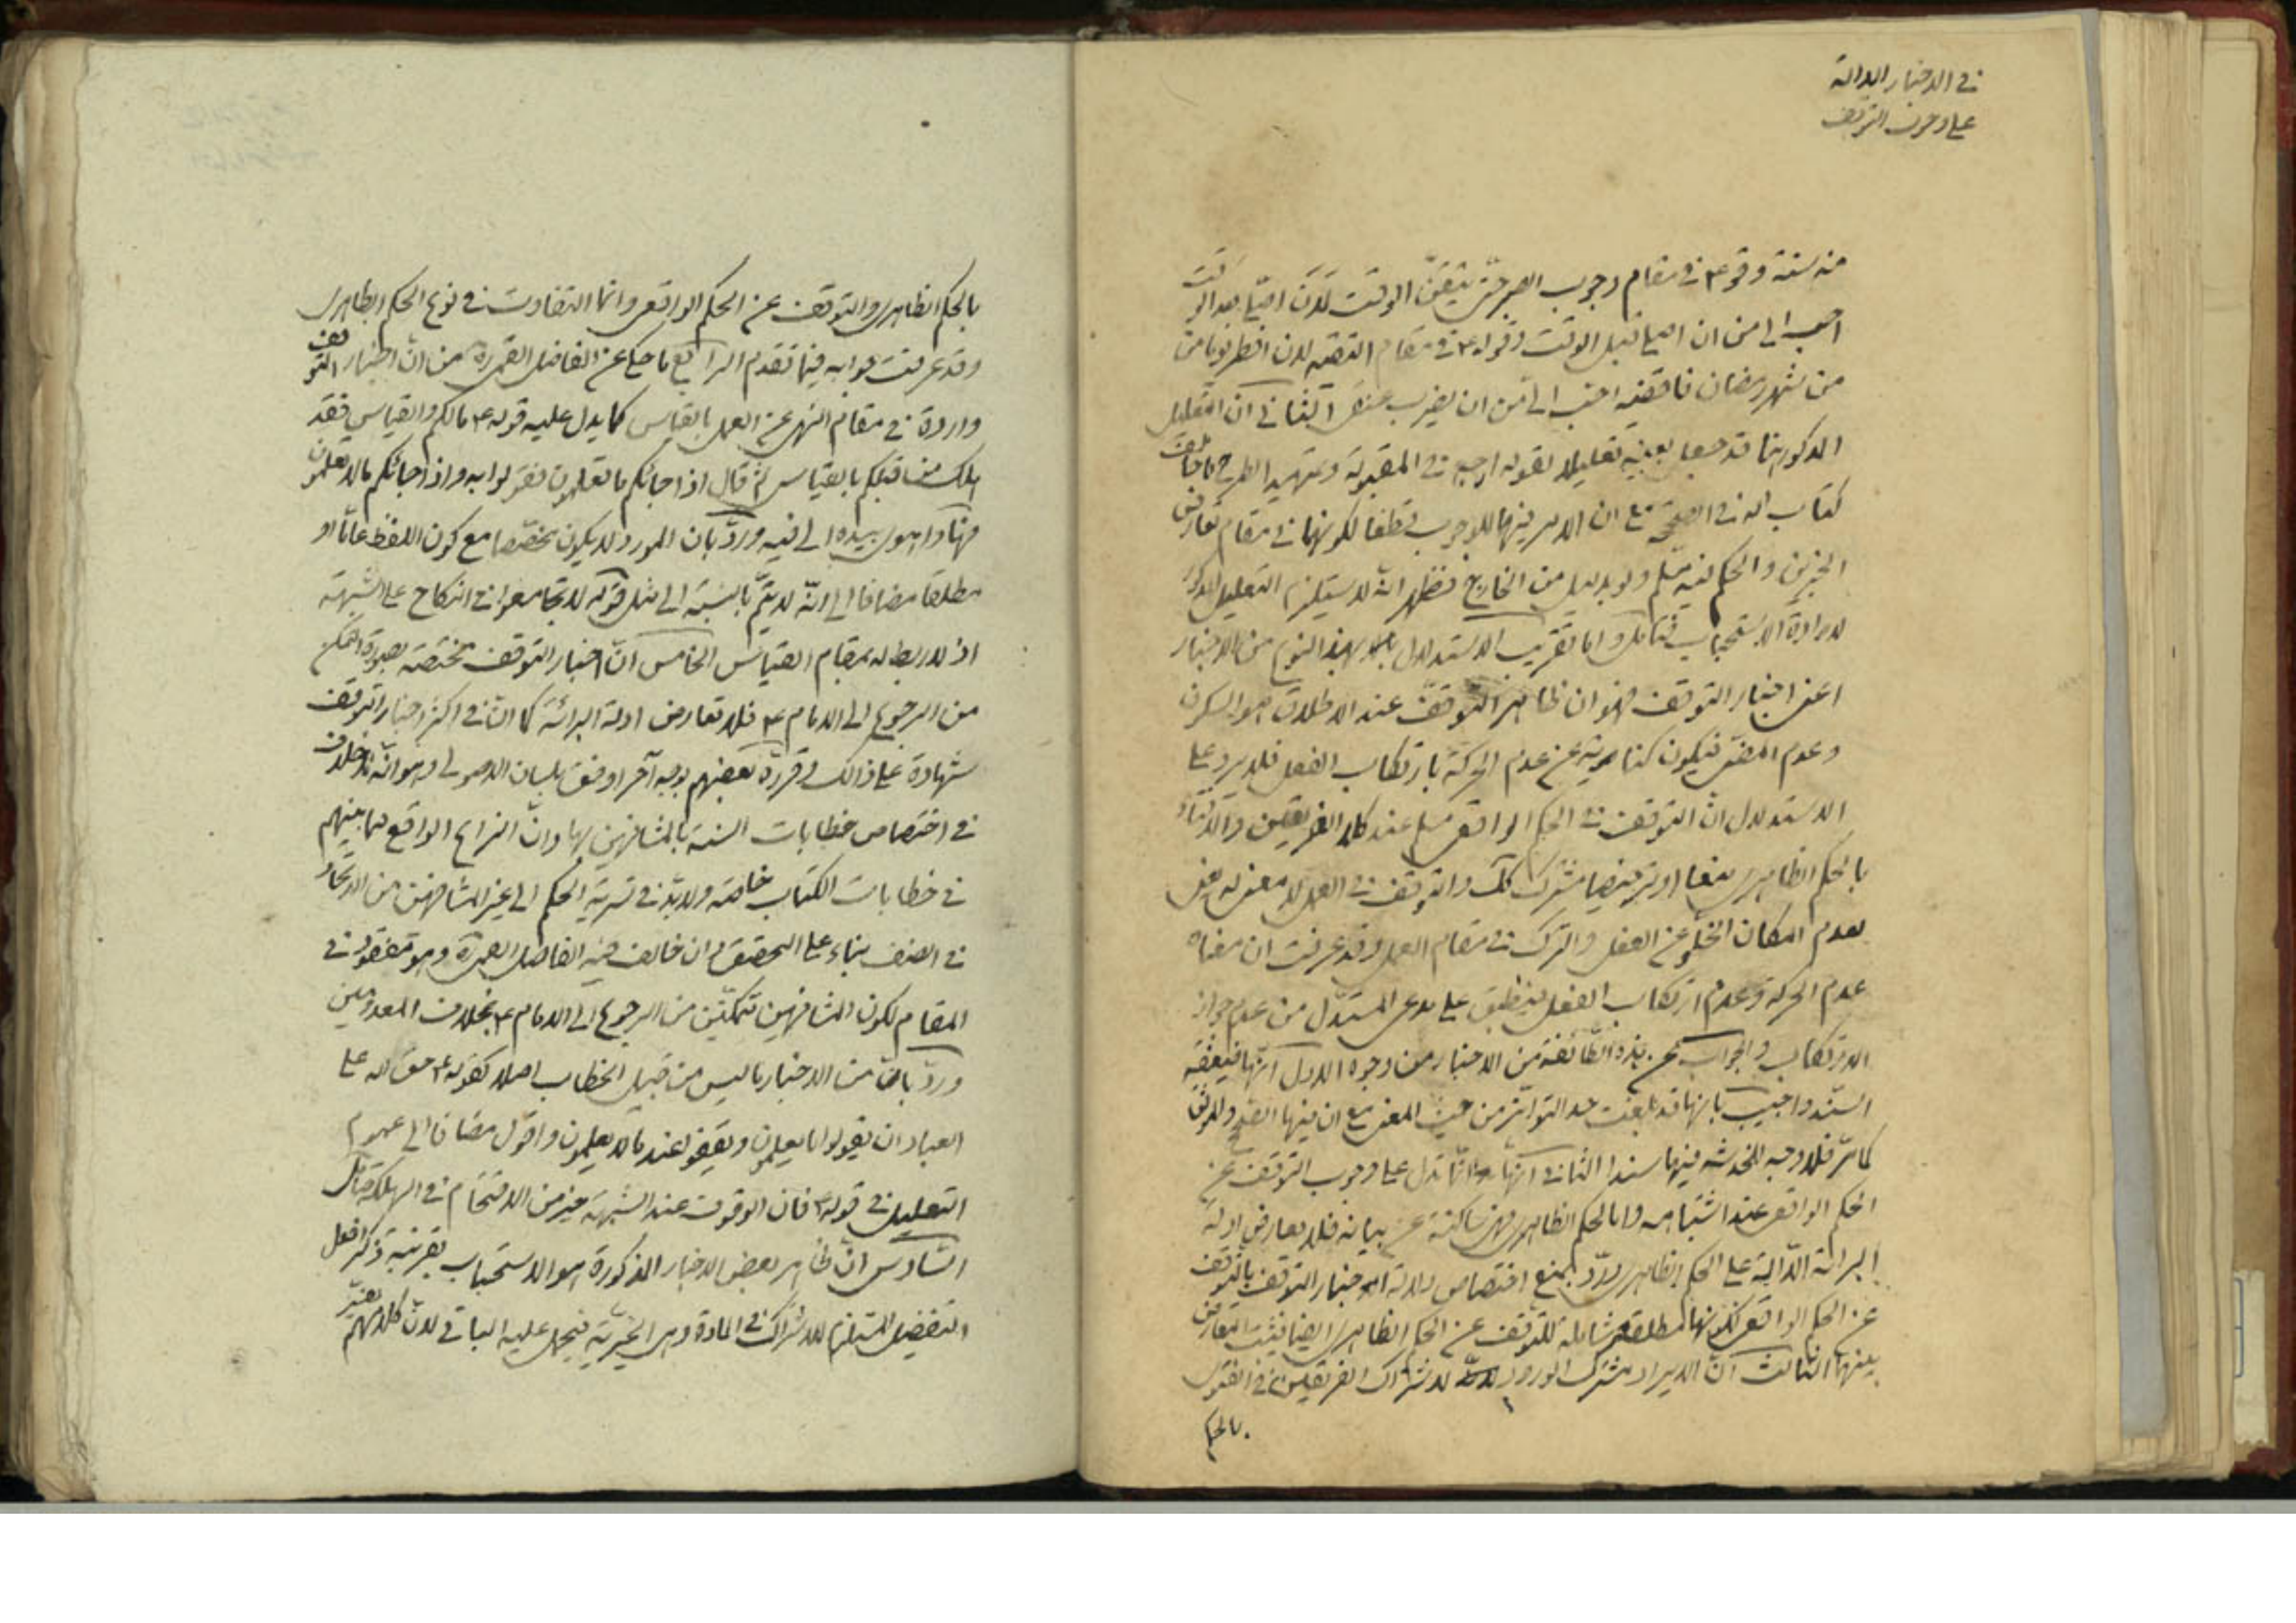 في الاخبار الدالة
على وجوب التوقف
منه سنة وقوله ع في مقام وجوب الصبر حتى تيقن الوقت لان اصلي بعد الوقت
احب الى من ان اصلي قبل الوقت وقوله ع في مقام التقية لان افطر يوما من
من شهر رمضان فاقضيه احب الى من ان يضرب عنقي الثاني ان التعليل
المذكور هنا قد جعل بعينه تعليلا لقوله ارجه في المقبولة وتمهيد الطرح ما خالف
كتاب الله في الصحيحة مع ان الامر فيهما للوجوب قطعا لكونهما في مقام تعارض
الخبرين والحكم فيه مسلم ولو بدليل من الخارج فظهر انه لا يستلزم التعليل المذكور
لارادة الاستحباب فتامل واما تقريب الاستدلال بهذا النوع من الاخبار
اعني اخبار التوقف فهو ان ظاهر التوقف عند الاطلاق هو السكون
وعدم المضي فيكون كناية عن عدم الحركة بارتكاب الفعل فلا يرد على
الاستدلال ان التوقف في الحكم الواقعي مسلم عند كلا الفريقين والافتاء
بالحكم الظاهري منعا او ترخيصا مشترك كك والتوقف في العمل لا معنى له يعني
لعدم امكان الخلو عن الفعل والترك في مقام العمل وقد عرفت ان معناه
عدم الحركة وعدم ارتكاب الفعل فينطبق على مدعى المستدل من عدم جواز
الارتكاب والجواب عن هذه الطائفة من الاخبار من وجوه الاول انها ضعيفة
السند واجيب بانها قد بلغت حد التواتر من حيث المعنى مع ان فيها الصحيح والموثق
كما مر فلا وجه للخدشة فيها سندا الثاني انها انما تدل على وجوب التوقف عن
الحكم الواقعي عند اشتباهه واما الحكم الظاهري فهي ساكتة عن بيانه فلا تعارض ادلة
البرائة الدالة على الحكم الظاهري ورد بمنع اختصاص دلالة اخبار التوقف بالتوقف
عن الحكم الواقعي لكونها مطلقة شاملة للتوقف عن الحكم الظاهري ايضا فيثبت التعارض
بينهما الثالث ان الايراد مشترك الورود لاشتراك الفريقين في الفتوى
بالحكم
بالحكم الظاهري والتوقف عن الحكم الواقعي وانما التفاوت في نوع الحكم الظاهري
وقد عرفت جوابه فيما تقدم الرابع ما حكي عن الفاضل القمي ره من ان اخبار التوقف
واردة في مقام النهي عن العمل بالقياس كما يدل عليه قوله ع مالكم والقياس فقد
هلك من قبلكم بالقياس ثم قال اذا جائكم ما تعلمون فقولوا به واذا جائكم ما لا تعلمون
فها واهوى بيده الى فيه ورد بان المورد لا يكون مخصصا مع كون اللفظ عاما او
مطلقا مضافا الى انه لا يتم بالنسبة الى مثل قوله لا تجامعوا في النكاح على الشبهة
اذ لا ربط له بمقام القياس الخامس ان اخبار التوقف مختصة بصورة التمكن
من الرجوع الى الامام ع فلا تعارض ادلة البرائة كما ان في اكثر اخبار التوقف
شهادة على ذالك وقرره بعضهم بوجه آخر اوفق بلسان الاصولي وهو انه لا خلاف
في اختصاص خطابات السنة بالمشافهين بها وان النزاع الواقع فيما بينهم
في خطابات الكتاب خاصة ولا بد في تسرية الحكم الى غير المشافهين من الاتحاد
في الصنف بناء على التحقيق وان خالف فيه الفاضل القمي ره وهو مفقود في
المقام لكون المشافهين متمكنين من الرجوع الى الامام ع بخلاف المعدومين
ورد بان من الاخبار ما ليس من قبيل الخطاب اصلا كقوله ع حق الله على
العباد ان يقولوا ما يعلمون ويقفوا عند ما لا يعلمون واقول مضافا الى عموم
التعليل في قوله ع فان الوقوف عند الشبهة خير من الاقتحام في الهلكة فتامل
السادس ان ظاهر بعض الاخبار المذكورة هو الاستحباب بقرينة ذكر افعل
التفضيل المستلزم للاشتراك في المادة وهي الخيرية فيحمل عليه الباقي لان كلامهم يفسر